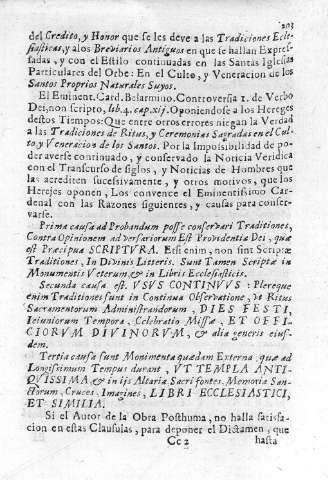 203
del Credito, y Honor que se les deve a las Tradiciones Ecle-
siasticas, y alos Breviarios Antiguos en que se hallan Expres-
sadas, y con el Estilo continuadas en las Santas Iglesias
Particulares del Orbe: En el Culto, y Veneracion de los
Santos Proprios Naturales Suyos.
El Eminent. Card. Belarmino. Controversia 1. de Verbo
Dei, non scripto, lib. 4. cap. xij. Oponiendose a los Hereges
destos Tiempos: Que entre otros errores niegan la Verdad
a las Tradiciones de Ritus, y Ceremonias Sagradas en el Cul-
to, y Veneracion de los Santos. Por la Impossibilidad de po-
der averse continuado, y conservado la Noticia Veridica
con el Transcurso de siglos, y Noticias de Hombres que
las acrediten sucessivamente, y otros motivos, que los
Herejes oponen, Los convence el Eminentissimo Car-
denal con las Razones siguientes, y causas para conser-
varse.
Prima causa ad Probandum posse conservari Traditiones,
Contra Opinionem adversariorum Est Providentia Dei, quæ
est Præcipua SCRIPTURA. Etsi enim, non sint Scriptæ
Traditiones, In Divinis Litteris. Sunt Tamen Scriptæ in
Monumentis Veterum, & in Libris Ecclesiasticis.
Secunda causa est. VSVS CONTINVVS: Plereque
enim Traditiones sunt in Continua Observatione, vt Ritus
Sacramentorum Administrandorum, DIES FESTI,
Ieiuniorum Tempora, Celebratio Missæ, ET OFFI-
CIORVM DIVINORVM, & alia generis eius-
dem.
Tertia causa sunt Monimenta quædam Externa, quæ ad
Longissimum Tempus durant, VT TEMPLA ANTI-
QVISSIMA, & in ijs Altaria Sacri fontes. Memoria Sanc-
torum, Cruces. Imagines, LIBRI ECCLESIASTICI,
ET SIMILIA.
Si el Autor de la Obra Posthuma, no halla satisfa-
cion en estas Clausulas, para deponer el Dictamen, que
Cc 2 hasta